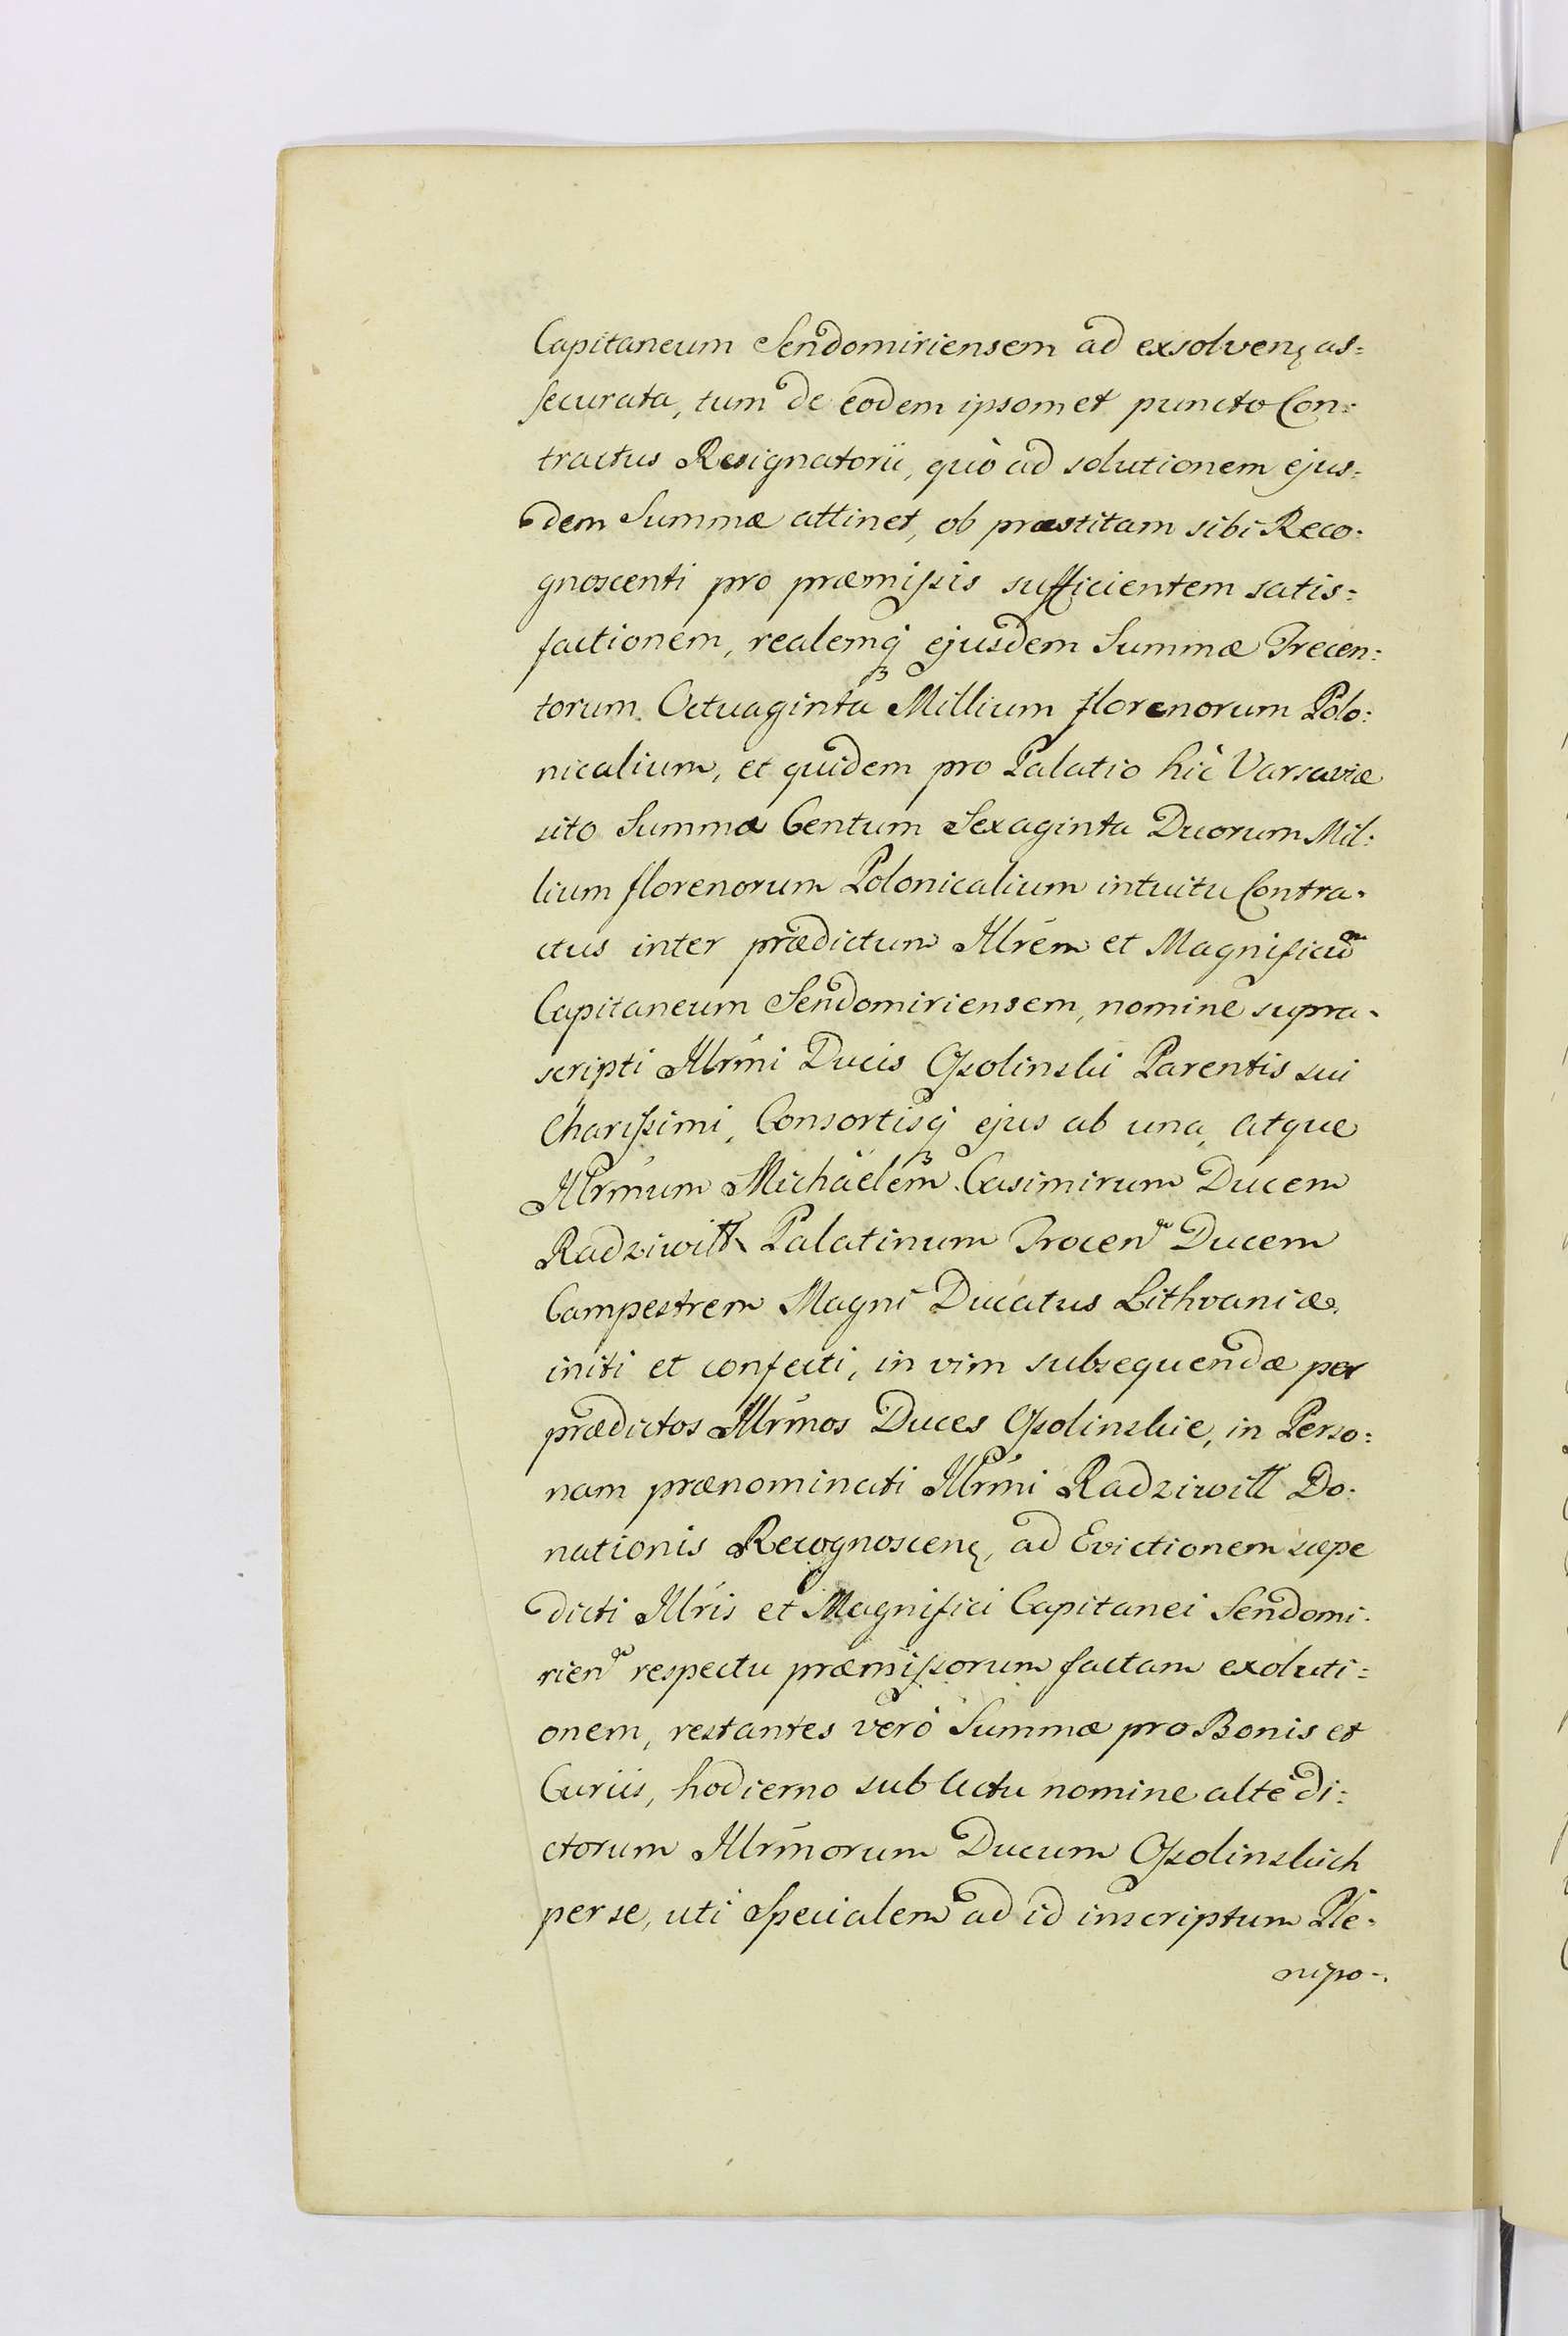 Capitaneum Sendomiriensem ad exsolven; as=
securata, tum de eodem ipsomet puncto Con=
tractus Resignatorii, quò ad solutionem ejus=
dem Summæ attinet, ob præstitam sibi Reco=
gnoscenti pro præmissis sufficientem satis=
factionem, realemq; ejusdem Summæ Trecen=
torum Octuaginta Millium florenorum Polo=
nicalium, et quidem pro Palatio hic Varsaviæ
sito Summa Centum Sexaginta Duorum Mil=
lium florenorum Polonicalium intuitu Contra=
ctus inter prædictum Illrem et Magnificum
Capitaneum Sendomiriensem, nomine supra=
scripti Illrmi Ducis Ossolinski Parentis sui
Charissimi, Consortisq; ejus ab una, atque
Illrmum Michaëlem Casimirum Ducem
Radziwiłł Palatinum Trocen Ducem
Campestrem Magni Ducatus Lithvaniæ,
initi et confecti, in vim subsequendæ per
prædictos Illrmos Duces Ossolinskie, in Perso=
nam prænominati Illrmi Radziwiłł Do=
nationis Recognoscen; ad Evictionem sæpe
dicti Illris et Magnifici Capitanei Sendomi=
rien respectu præmissorum factam exoluti=
onem, restantes verò Summæ pro Bonis et
Curiis, hodierno sub Actu nomine altè di=
ctorum Illrmorum Ducum Ossolinskich
per se, uti Specialem ad id inscriptum Ple=
nipo-